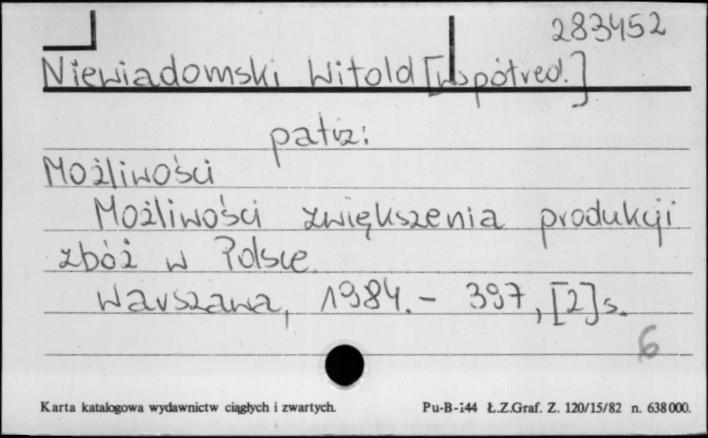 283452
Niewiadomski Witold [współred.]
patrz:
Możliwości
Możliwości zwiększenia produkcji
zbóż w Polsce.
Warszawa, 1984. - 397, [2] s.
6
Karta katalogowa wydawnictw ciągłych i zwartych. Pu-B-144 Ł.Z.Graf. Z. 120/15/82 n. 638000.